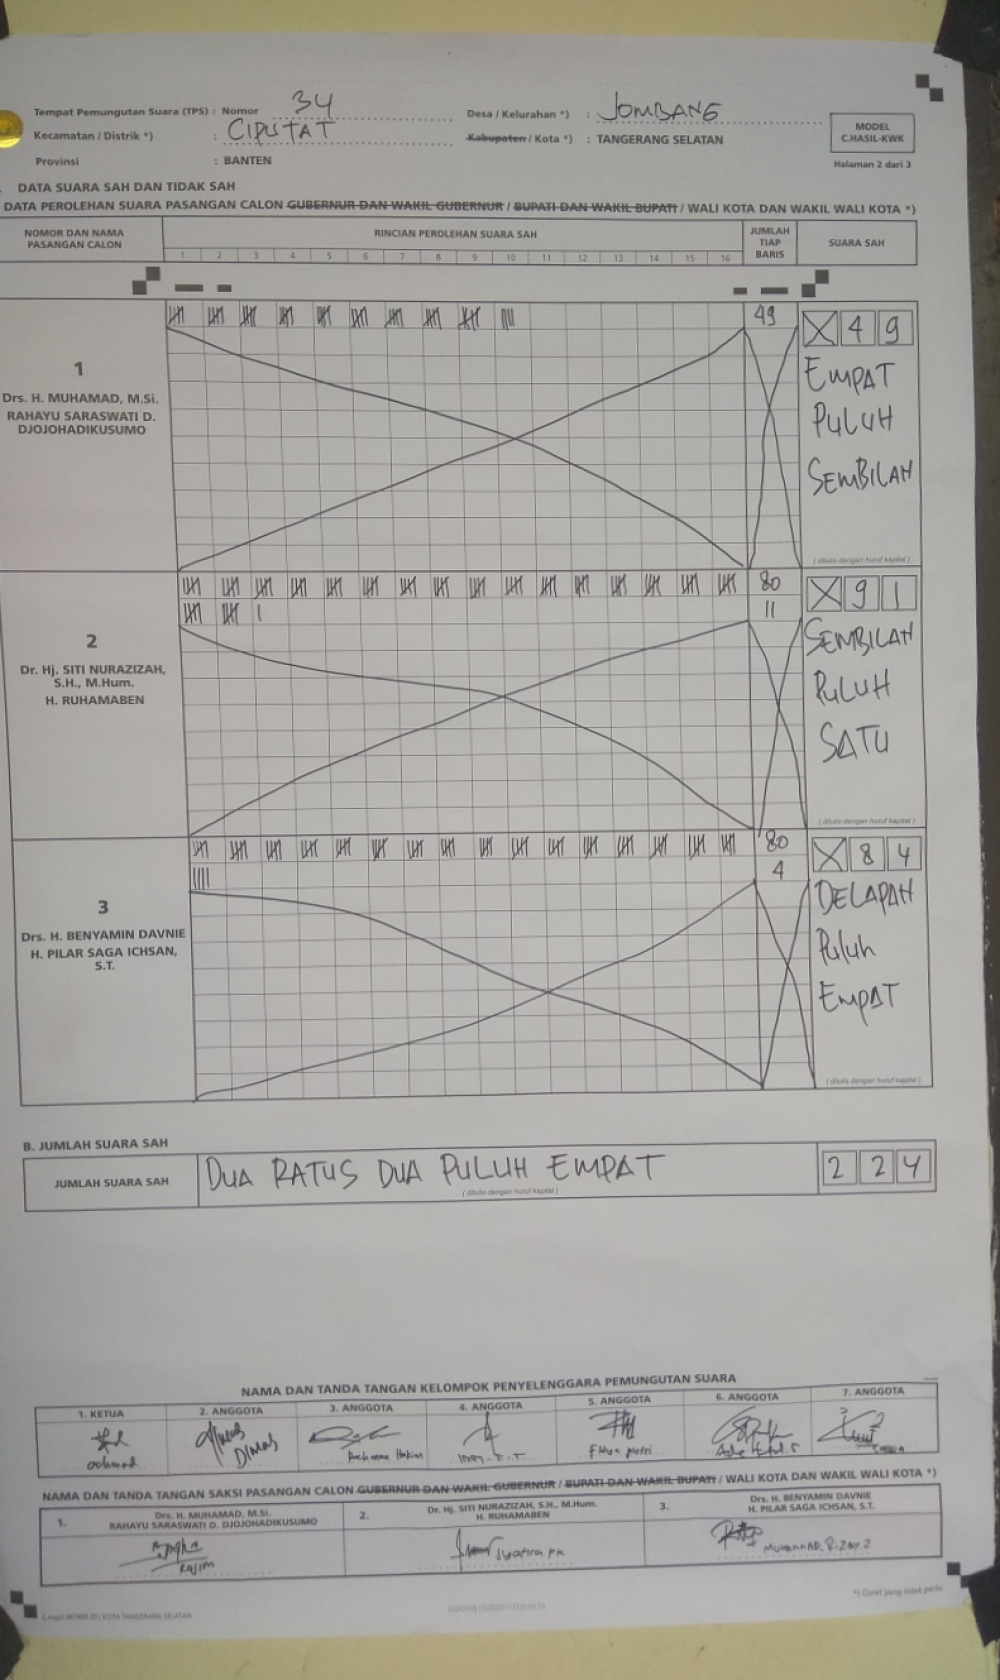 Tempat Pemungutan Suara (TPS) : Nomor 34 Desa / Kelurahan *) : JOMBANG
Kecamatan / Distrik *) : CIPUTAT Kabupaten / Kota *) : TANGERANG SELATAN
Provinsi : BANTEN
MODEL
C.HASIL-KWK
Halaman 2 dari 3
DATA SUARA SAH DAN TIDAK SAH
DATA PEROLEHAN SUARA PASANGAN CALON GUBERNUR DAN WAKIL GUBERNUR / BUPATI DAN WAKIL BUPATI / WALI KOTA DAN WAKIL WALI KOTA *)
NOMOR DAN NAMA PASANGAN CALON
RINCIAN PEROLEHAN SUARA SAH
JUMLAH TIAP BARIS
SUARA SAH
1 2 3 4 5 6 7 8 9 10 11 12 13 14 15 16
1
Drs. H. MUHAMAD, M.Si.
RAHAYU SARASWATI D.
DJOJOHADIKUSUMO
49
X 4 9
EMPAT
PULUH
SEMBILAN
( ditulis dengan huruf kapital )
2
Dr. Hj. SITI NURAZIZAH,
S.H., M.Hum.
H. RUHAMABEN
80
11
X 9 1
SEMBILAN
PULUH
SATU
( ditulis dengan huruf kapital )
3
Drs. H. BENYAMIN DAVNIE
H. PILAR SAGA ICHSAN,
S.T.
80
4
X 8 4
DELAPAN
Puluh
EmpAT
( ditulis dengan huruf kapital )
B. JUMLAH SUARA SAH
JUMLAH SUARA SAH DUA RATUS DUA PULUH EMPAT 2 2 4
( ditulis dengan huruf kapital )
NAMA DAN TANDA TANGAN KELOMPOK PENYELENGGARA PEMUNGUTAN SUARA
1. KETUA 2. ANGGOTA 3. ANGGOTA 4. ANGGOTA 5. ANGGOTA 6. ANGGOTA 7. ANGGOTA
achmad DIMAS Rachman Hakim putri
NAMA DAN TANDA TANGAN SAKSI PASANGAN CALON GUBERNUR DAN WAKIL GUBERNUR / BUPATI DAN WAKIL BUPATI / WALI KOTA DAN WAKIL WALI KOTA *)
1. Drs. H. MUHAMAD, M.Si.
RAHAYU SARASWATI D. DJOJOHADIKUSUMO
2. Dr. Hj. SITI NURAZIZAH, S.H., M.Hum.
H. RUHAMABEN
3. Drs. H. BENYAMIN DAVNIE
H. PILAR SAGA ICHSAN, S.T.
*) Coret yang tidak perlu
KOTA TANGERANG SELATAN